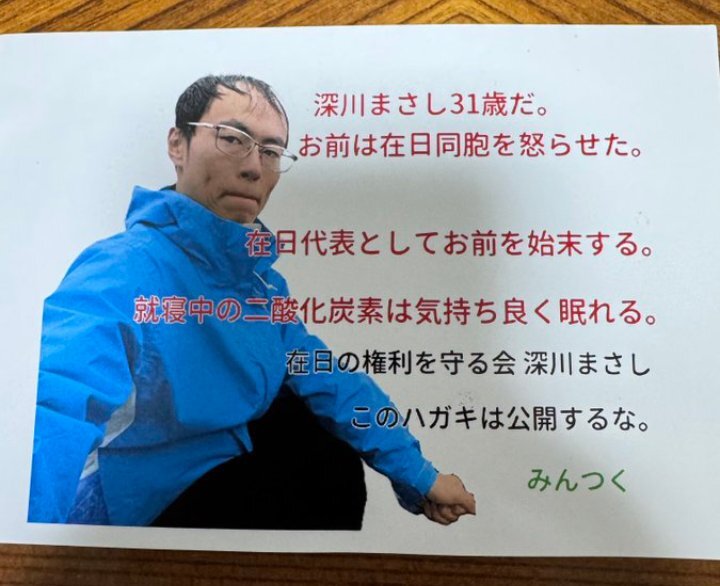 深川まさし31歳だ。
お前は在日同胞を怒らせた。
在日代表としてお前を始末する。
就寝中の二酸化炭素は気持ち良く眠れる。
在日の権利を守る会 深川まさし
このハガキは公開するな。
みんつく